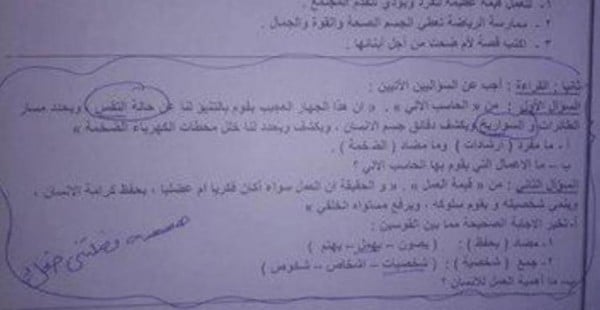 ١. للعمل قيمة عظيمة للفرد ويؤدي لتقدم المجتمع .
٢. ممارسة الرياضة تعطي الجسم الصحة والقوة والجمال .
٣. اكتب قصة لأم ضحت من أجل أبنائها .
ثانيا : القراءة : أجب عن السؤالين الأتيين :
السؤال الأول : من « الحاسب الألي » . « ان هذا الجهاز العجيب يقوم بالتنبؤ لنا عن حالة الطقس ويحدد مسار
الطائرات و السواريخ ويكشف دقائق جسم الانسان . ويكشف ويحدد لنا خلل محطات الكهرباء الضخمة »
أ - ما مفرد ( ارشادات ) وما مضاد ( الضخمة ) .
ب - ما الاعمال التي يقوم بها الحاسب الالي ؟
السؤال الثاني : من « قيمة العمل » . « و الحقيقة ان العمل سواء أكان فكريا ام عضليا ، يحفظ كرامة الانسان ،
وينمي شخصيته و يقوم سلوكه . ويرفع مستواه الخلقي »
أ- تخير الاجابة الصحيحة مما بين القوسين :
١- مضاد ( يحفظ ) : ( يصون – يهمل – يهتم )
٢- جمع ( شخصية ) : ( شخصيات – اشخاص – شخوص )
ب- ما أهمية العمل للانسان ؟